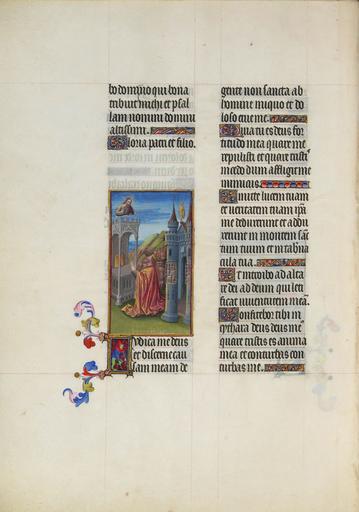 bo domino qui bona
tribuit michi et psal
lam nomini domini
altissimi.
Gloria patri et filio.
Iudica me deus
et discerne cau
sam meam de
gente non sancta ab
homine iniquo et do
loso erue me.
Quia tu es deus for
titudo mea quare me
repulisti et quare tristis
incedo dum affligit me
inimicus.
Emitte lucem tuam
et veritatem tuam ipsa
me deduxerunt et addu
xerunt in montem sanc
tum tuum et in taberna
cula tua.
Et introibo ad alta
re dei ad deum qui leti
ficat iuventutem meam.
Confitebor tibi in
cythara deus deus meus
quare tristis es anima
mea et quare conturbas con
turbas me.